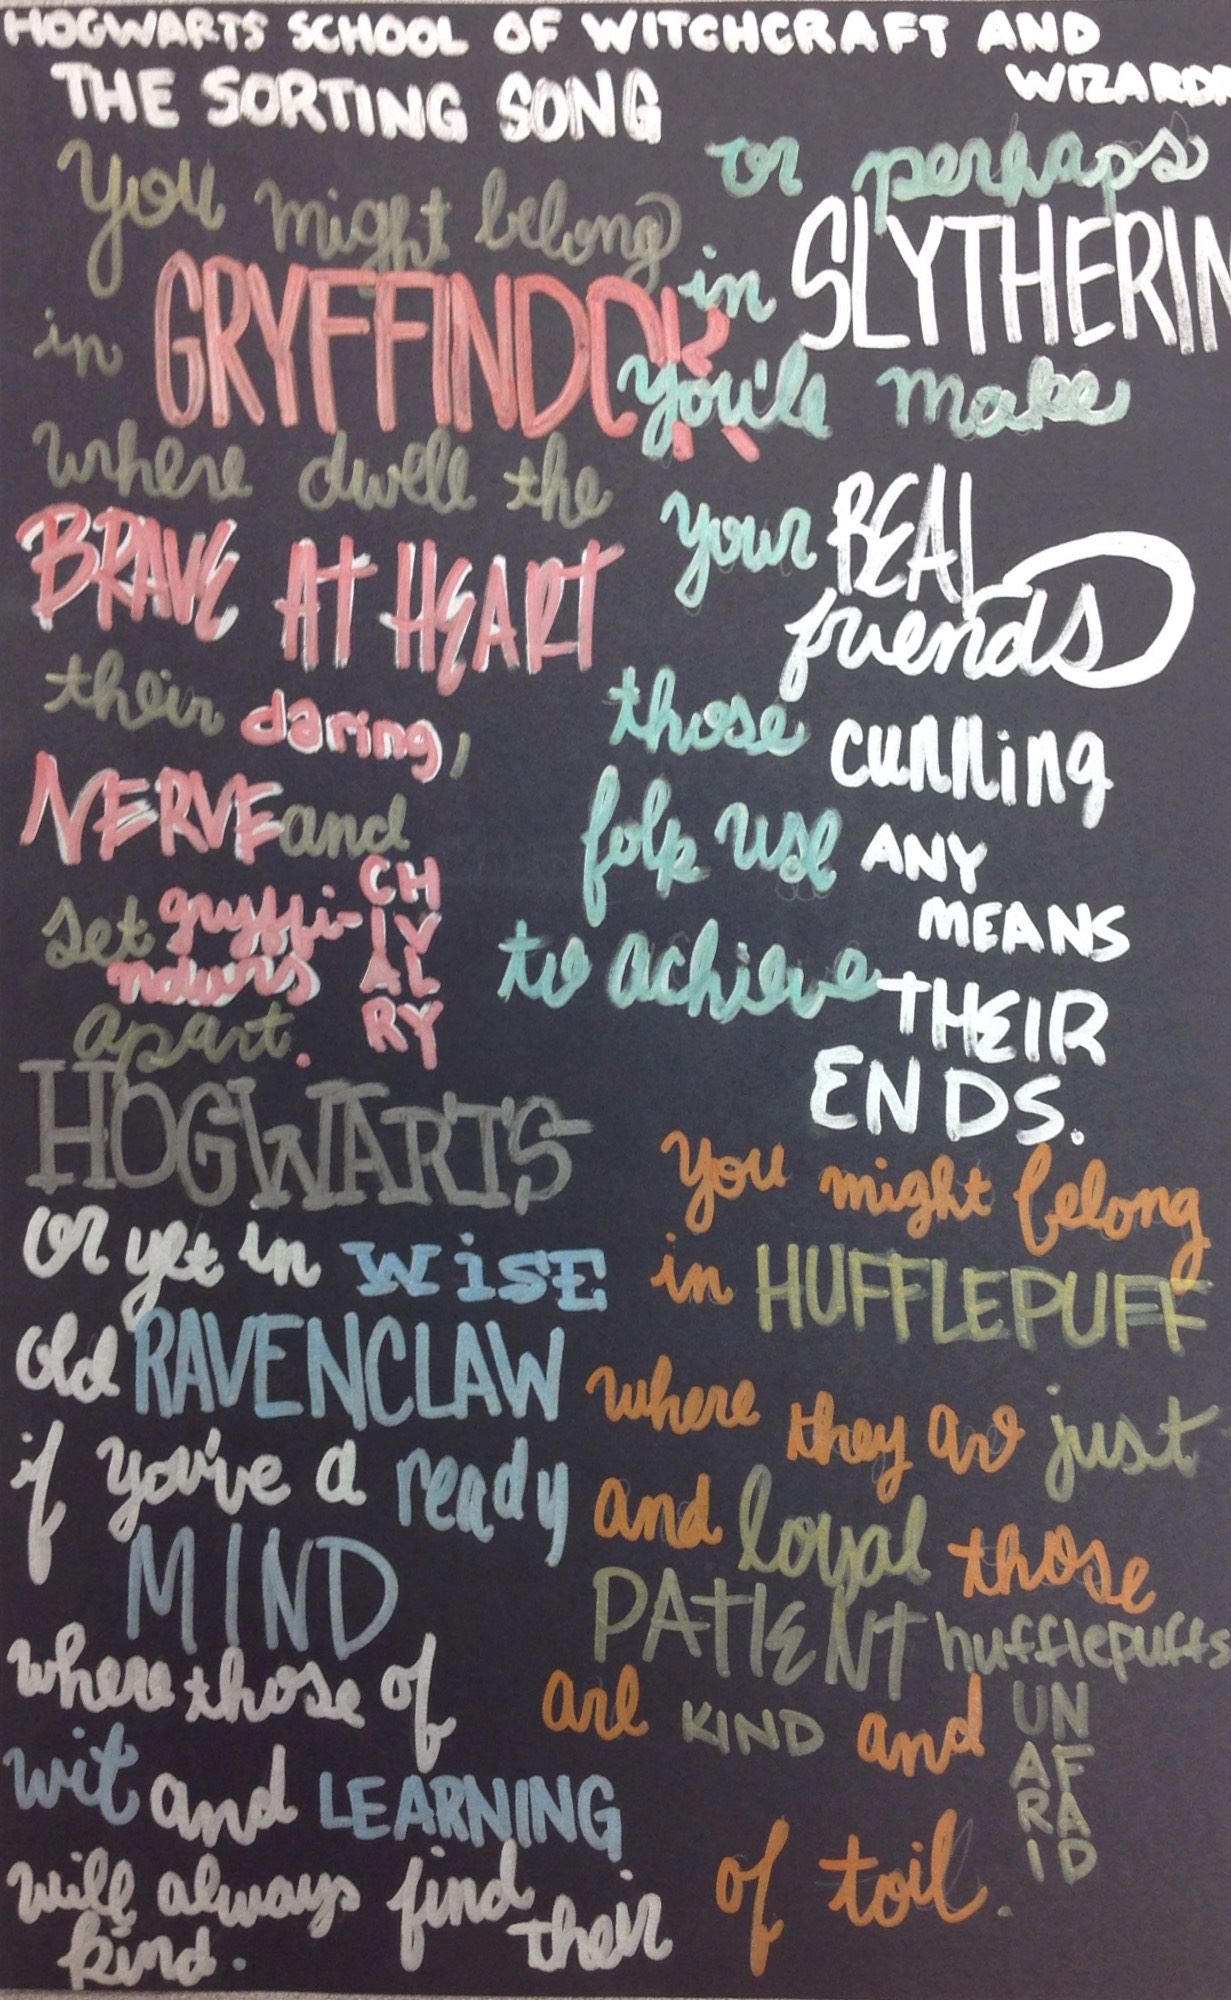 HOGWARTS SCHOOL OF WITCHCRAFT AND
WIZARDR
THE SORTING SONG
you might belong
in GRYFFINDOR
where dwell the
BRAVE AT HEART
their daring,
NERVE and
set gryffi-
ndors
CH
IV
AL
RY
apart.
or perhaps
in SLYTHERIN
you'll make
your REAL
friends
those cunning
folk use ANY
MEANS
to achieve THEIR
ENDS.
HOGWARTS
or yet in WISE
old RAVENCLAW
if you've a ready
MIND
where those of
wit and LEARNING
will always find their
kind.
you might belong
in HUFFLEPUFF
where they are just
and loyal those
PATIENT hufflepuffs
are KIND and
UN
AF
RA
ID
of toil.